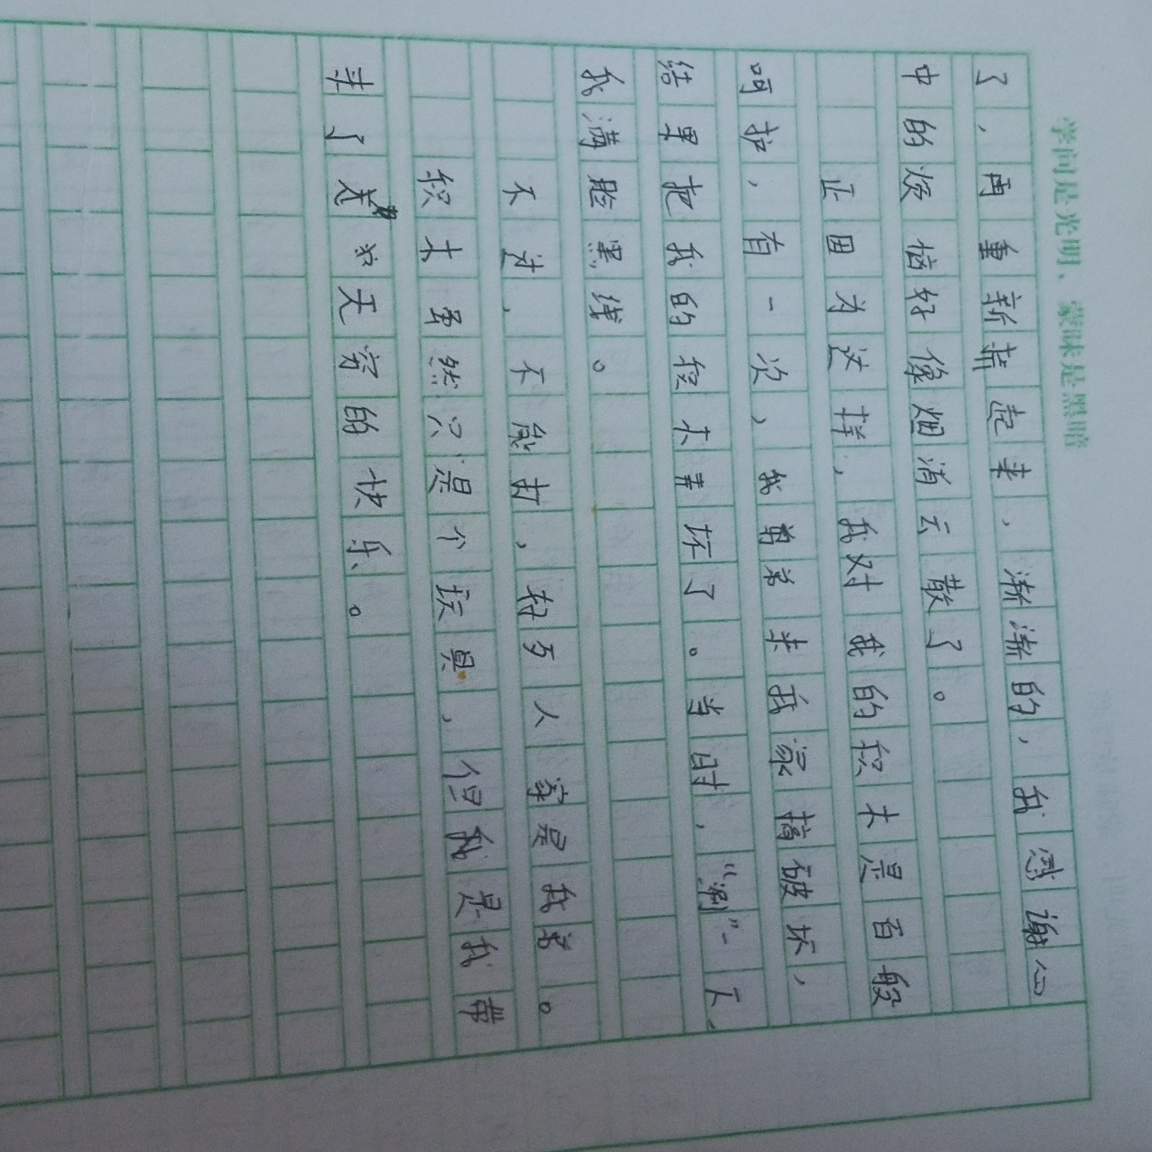 学问是光明、蒙昧是黑暗
了，再重新拼起来，渐渐的，我感谢心
中的烦恼好像烟消云散了。
正因为这样，我对我的积木是百般
呵护，有一次，我弟来我家搞破坏，
结果把我的积木弄坏了。当时，“唰”一下，
我满脸黑线。
不过，不能打，好歹人家是我弟。
积木虽然只是个玩具，但是我带
来了和无穷的快乐。